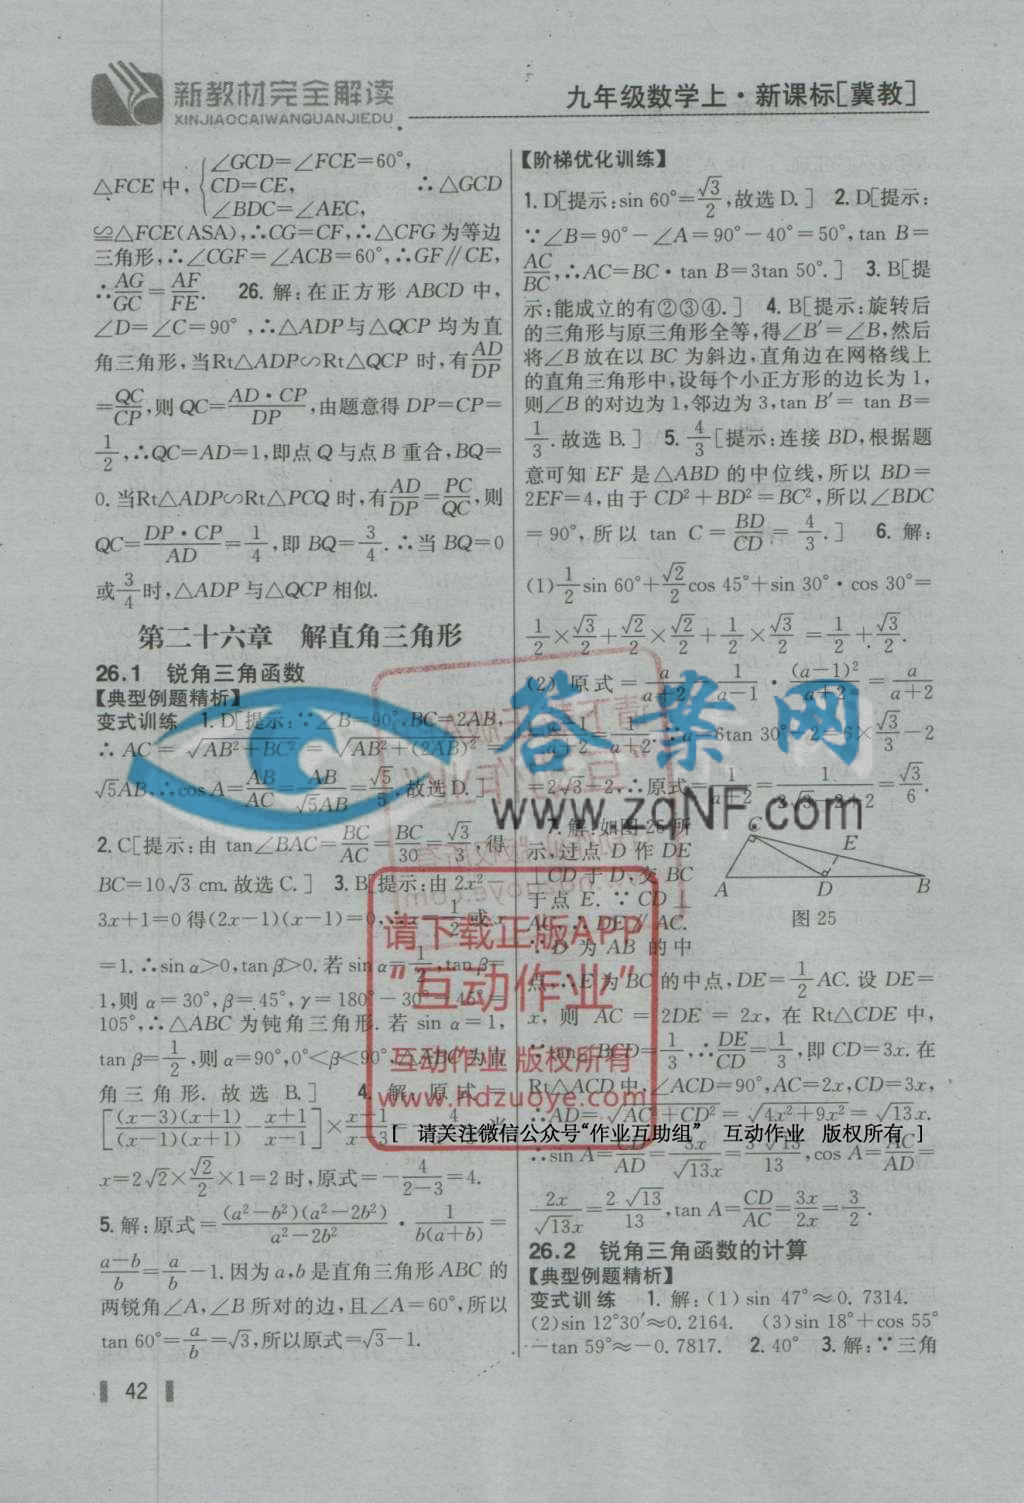 新教材完全解读
XINJIAOCAIWANQUANJIEDU
九年级数学上·新课标[冀教]
△FCE中,{∠GCD=∠FCE=60°, CD=CE, ∠BDC=∠AEC, ∴△GCD
≌△FCE(ASA),∴CG=CF,∴△CFG为等边
三角形,∴∠CGF=∠ACB=60°,∴GF∥CE,
∴AG/GC=AF/FE. 26. 解:在正方形 ABCD 中,
∠D=∠C=90°,∴△ADP与△QCP 均为直
角三角形,当Rt△ADP∽Rt△QCP 时,有AD/DP
=QC/CP,则 QC=AD·CP/DP,由题意得 DP=CP=
1/2,∴QC=AD=1,即点 Q 与点 B 重合,BQ=
0. 当Rt△ADP∽Rt△PCQ 时,有AD/DP=PC/QC,则
QC=DP·CP/AD=1/4,即 BQ=3/4. ∴当 BQ=0
或3/4时,△ADP与△QCP相似.
第二十六章 解直角三角形
26.1 锐角三角函数
【典型例题精析】
变式训练 1. D[提示:∵∠B=90°,BC=2AB,
∴AC=√(AB²+BC²)=√(AB²+(2AB)²)=
√5AB,∴cos A=AB/AC=AB/√5AB=√5/5.故选D.]
2. C[提示:由 tan∠BAC=BC/AC=BC/30=√3/3,得
BC=10√3 cm.故选C.] 3. B[提示:由 2x²-
3x+1=0得(2x-1)(x-1)=0,∴x=1/2或x
=1. ∴sin α>0,tan β>0. 若 sin α=1/2,tan β=
1,则 α=30°,β=45°,γ=180°-30°-45°=
105°,∴△ABC 为钝角三角形. 若 sin α=1,
tan β=1/2,则α=90°,0°<β<90°,△ABC为直
角三角形. 故选 B.] 4. 解:原式=
[(x-3)(x+1)/(x-1)(x+1)-x+1/x-1]×x-1/x-3
x=2√2×√2/2×1=2时,原式=-4/(2-3)=4.
5. 解:原式=(a²-b²)(a²-2b²)/(a²-2b²)·1/b(a+b)=
a-b/b=a/b-1. 因为 a,b 是直角三角形 ABC 的
两锐角∠A,∠B 所对的边,且∠A=60°,所以
tan 60°=a/b=√3,所以原式=√3-1.
42
【阶梯优化训练】
1. D[提示:sin 60°=√3/2,故选D.] 2. D[提示:
∵∠B=90°-∠A=90°-40°=50°,tan B=
AC/BC,∴AC=BC·tan B=3tan 50°.] 3. B[提
示:能成立的有②③④.] 4. B[提示:旋转后
的三角形与原三角形全等,得∠B′=∠B,然后
将∠B 放在以 BC 为斜边,直角边在网格线上
的直角三角形中,设每个小正方形的边长为 1,
则∠B 的对边为 1,邻边为 3,tan B′= tan B=
1/3.故选 B.] 5. 4/3[提示:连接 BD,根据题
意可知 EF 是△ABD 的中位线,所以 BD=
2EF=4,由于 CD²+BD²=BC²,所以∠BDC
=90°,所以 tan C=BD/CD=4/3.] 6. 解:
(1)1/2sin 60°+√2/2cos 45°+sin 30°·cos 30°=
1/2×√3/2+√2/2×√2/2+1/2×√3/2=1/2+√3/2.
(2) 原式=a/(a+2)-1/(a-1)·(a-1)²/(a+2)=a/(a+2)
-(a-1)/(a+2)=1/(a+2). ∵a=6tan 30°-2=6×√3/3-2
=2√3-2,∴原式=1/(a+2)=1/(2√3-2+2)=√3/6.
7. 解:如图 25 所
示,过点 D 作 DE
⊥CD 于 D,交 BC
于点 E. ∵CD⊥
AC,∴DE∥AC.
∵D 为 AB 的中
点,∴E为BC的中点,DE=1/2AC. 设 DE=
x,则 AC=2DE=2x,在 Rt△CDE 中,
∵tan∠BCD=1/3,∴DE/CD=1/3,即 CD=3x. 在
Rt△ACD 中,∠ACD=90°,AC=2x,CD=3x,
∴AD=√(AC²+CD²)=√(4x²+9x²)=√13x.
∴sin A=CD/AD=3x/√13x=3√13/13,cos A=AC/AD=
2x/√13x=2√13/13,tan A=CD/AC=3x/2x=3/2.
C
E
A
D
B
图 25
26.2 锐角三角函数的计算
【典型例题精析】
变式训练 1. 解:(1) sin 47°≈0.7314.
(2)sin 12°30′≈0.2164. (3)sin 18°+cos 55°
-tan 59°≈-0.7817. 2. 40° 3. 解:∵三角
答案网
www.zqNF.com
请下载正版APP
"互动作业"
互动作业 版权所有
www.hdzuoye.com
[ 请关注微信公众号“作业互助组” 互动作业 版权所有 ]